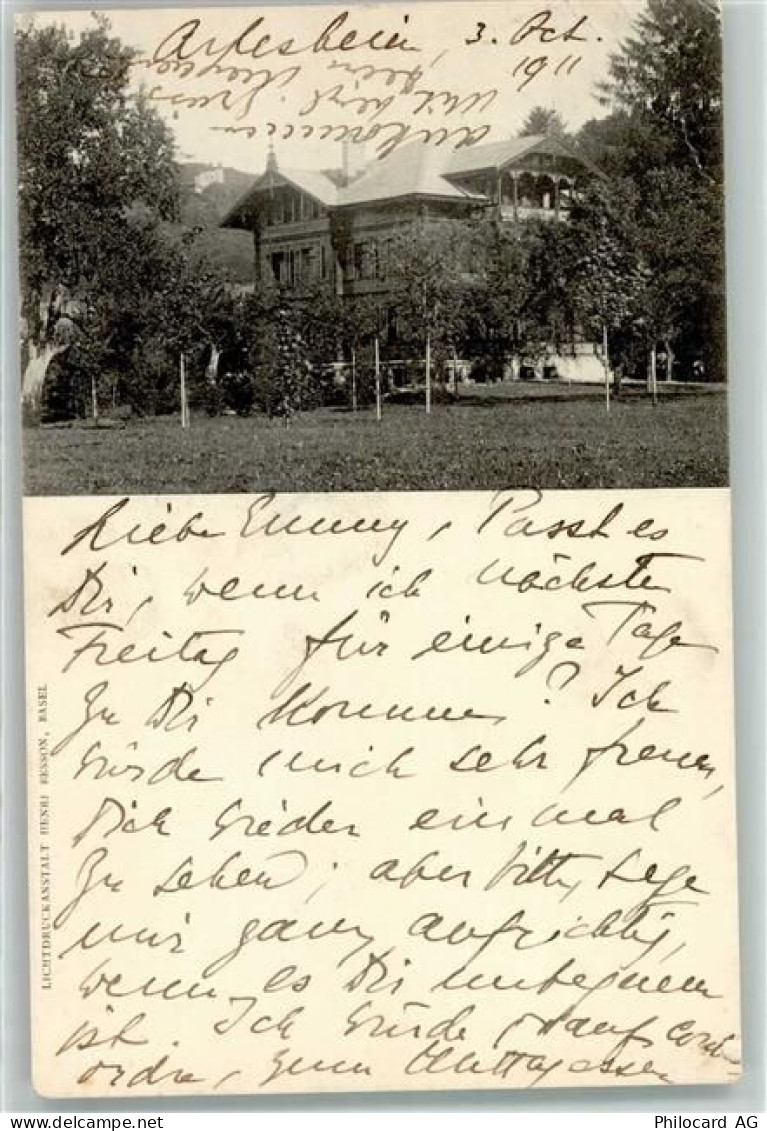 Arlesheim, 3. Oct.
1911
ankommen
Liebe Emmy, Passt es
Dir, wenn ich nächsten
Freitag für einige Tage
zu Dir komme? Ich
würde mich sehr freuen,
Dich wieder einmal
zu sehen; aber bitte, sage
mir ganz aufrichtig,
wenn es Dir unbequem
ist. Ich würde, sauf contre
ordre, zum Mittagessen
LICHTDRUCKANSTALT HENRI BESSON, BASEL
Philocard AG